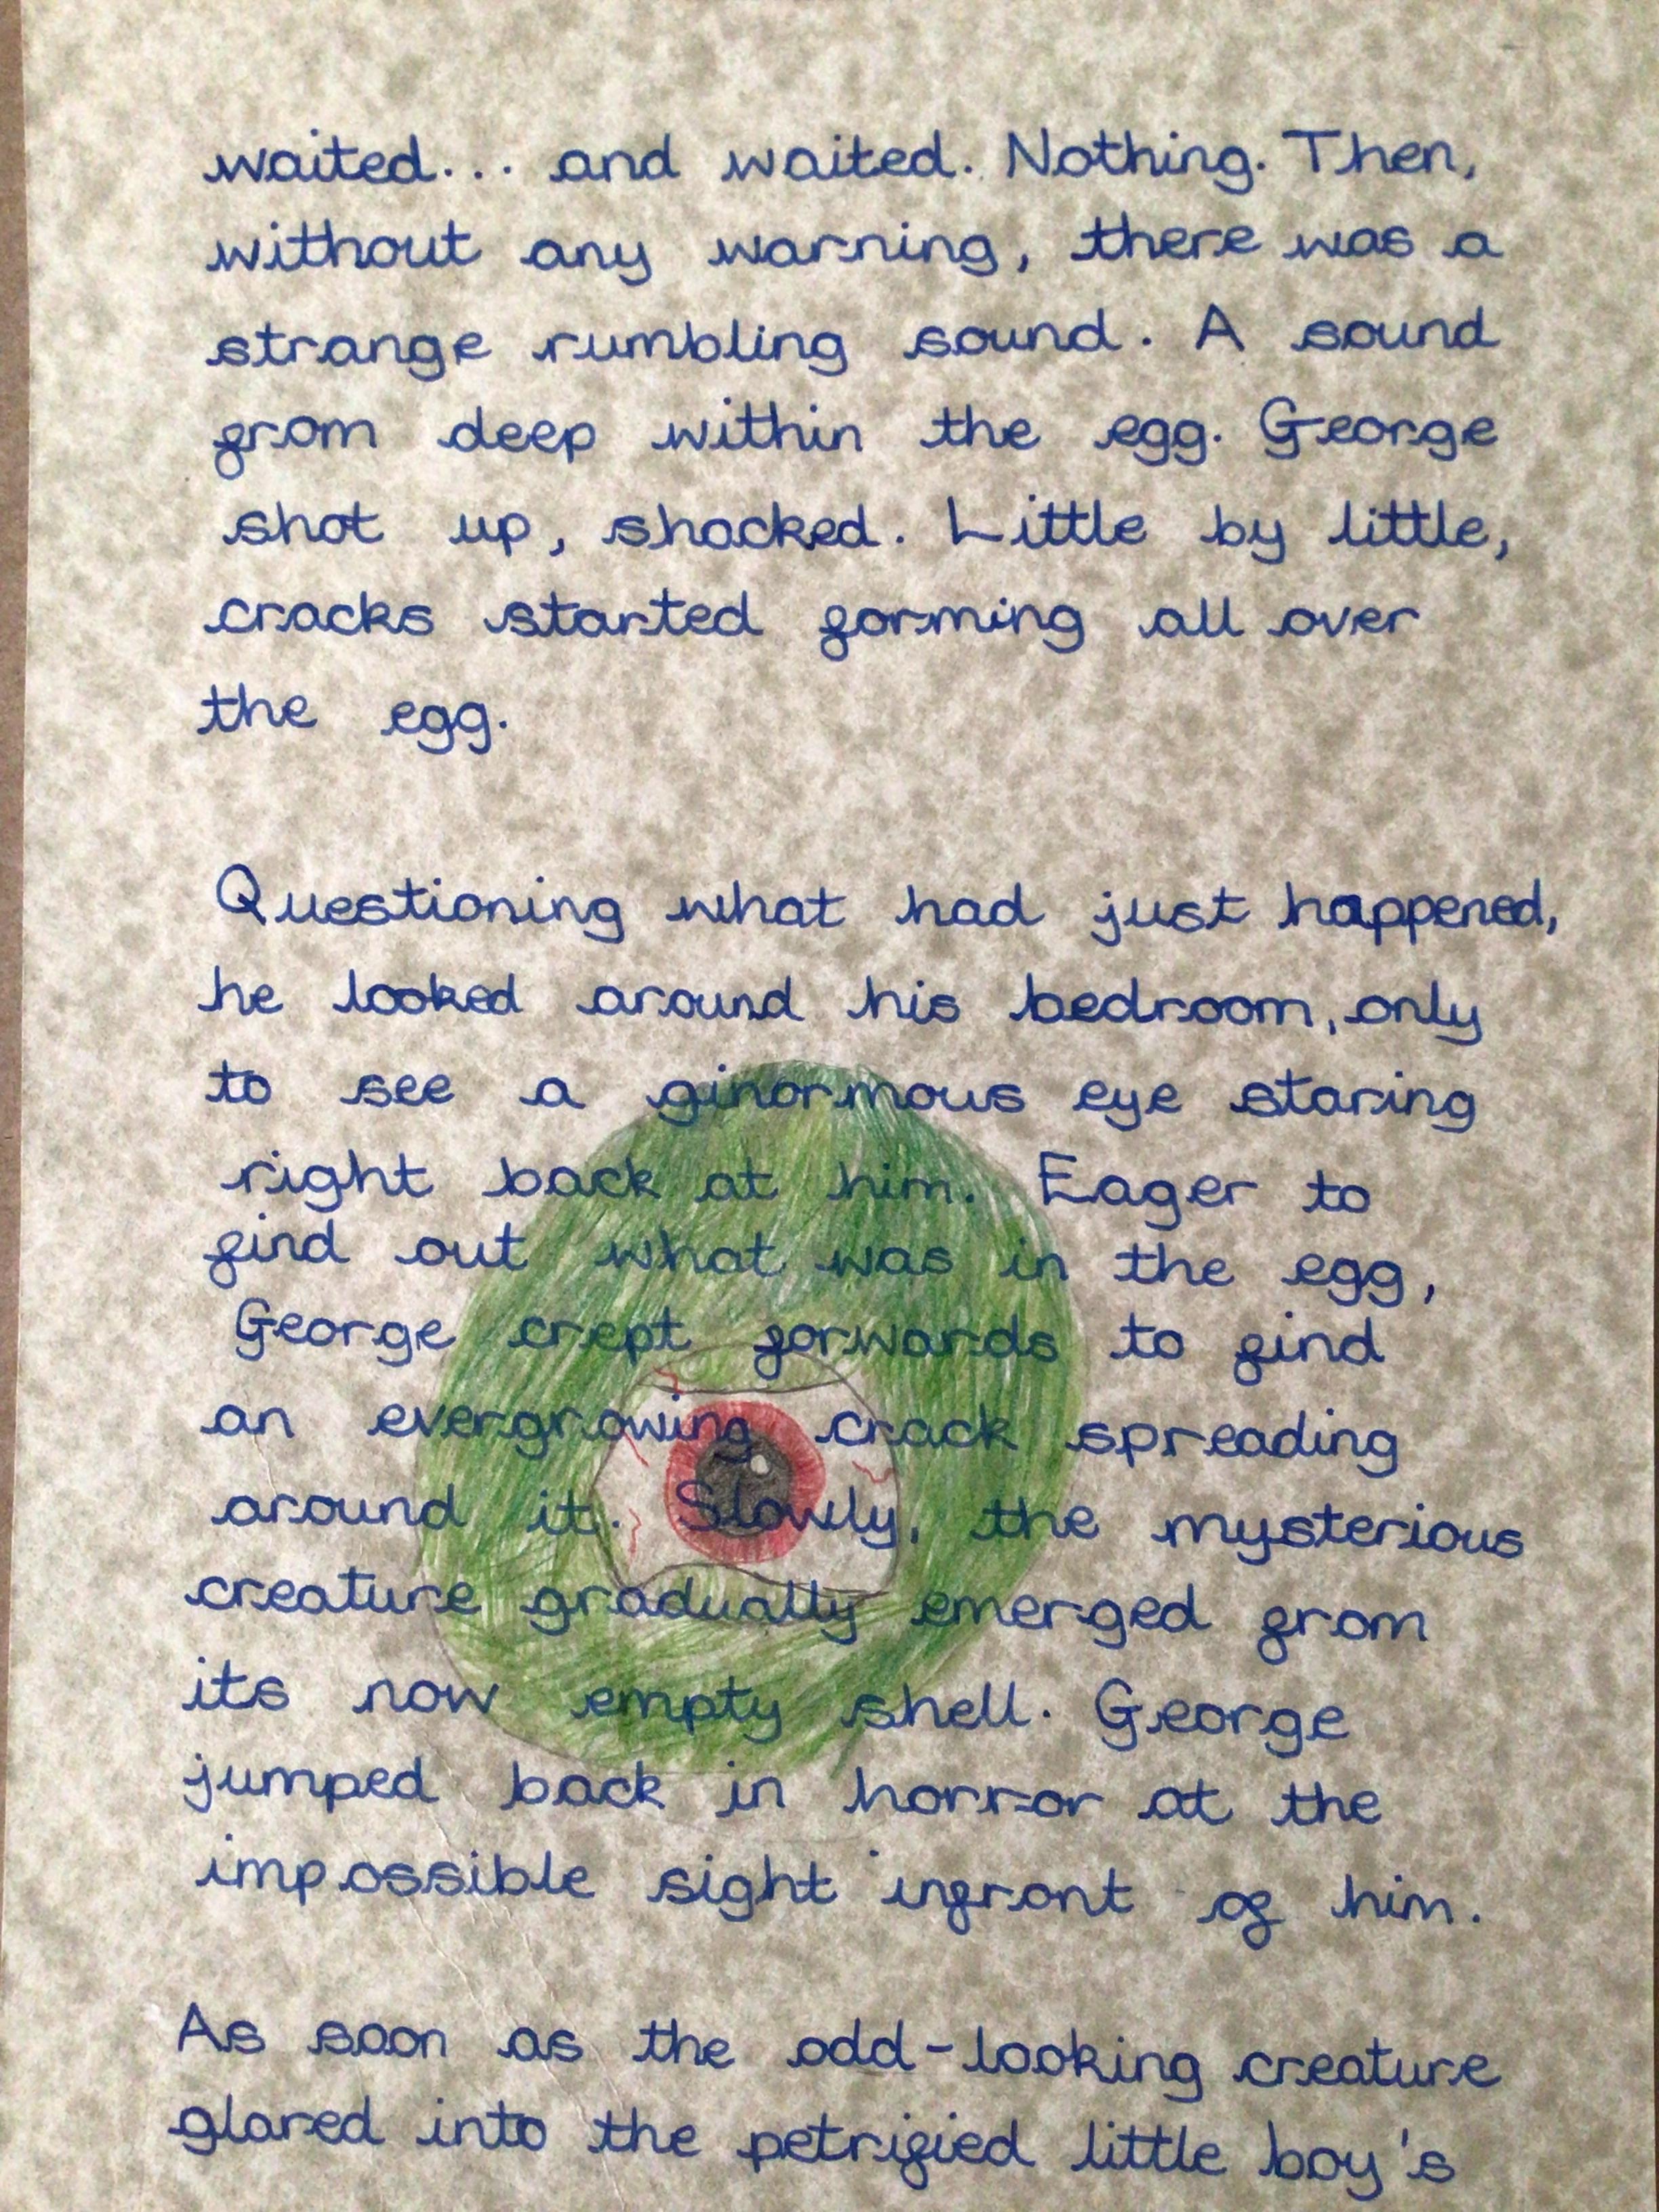 waited... and waited. Nothing. Then,
without any warning, there was a
strange rumbling sound. A sound
from deep within the egg. George
shot up, shocked. Little by little,
cracks started forming all over
the egg.
Questioning what had just happened,
he looked around his bedroom, only
to see a ginormous eye staring
right back at him. Eager to
find out what was in the egg,
George crept forwards to find
an evergrowing crack spreading
around it. Slowly, the mysterious
creature gradually emerged from
its now empty shell. George
jumped back in horror at the
impossible sight infront of him.
As soon as the odd-looking creature
glared into the petrified little boy's